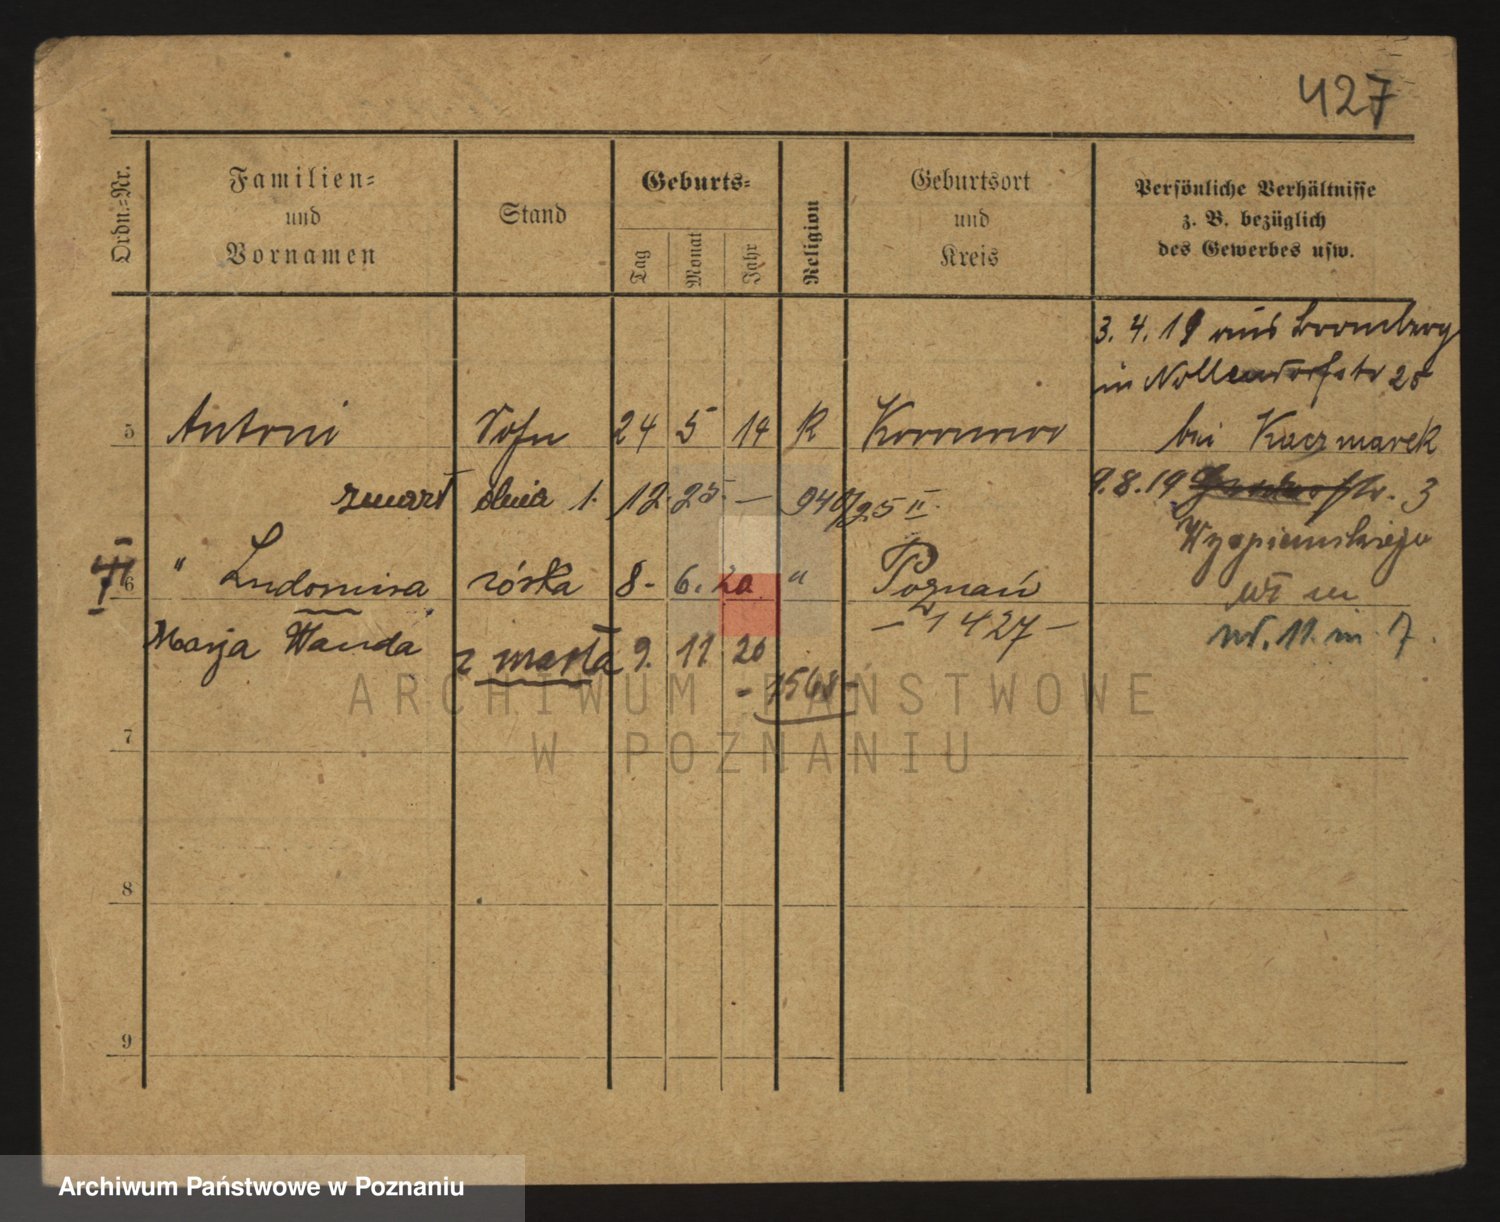 427
Ordn.-Nr.
Familien-
und
Vornamen
Stand
Geburts-
Tag
Monat
Jahr
Religion
Geburtsort
und
Kreis
Persönliche Verhältnisse
z. B. bezüglich
des Gewerbes usw.
3. 4. 19 aus Bromberg
in Nollendorfstr 25
5 Antoni Sohn 24 5 14 K
bei Kaczmarek
zmarł dnia 1. 12. 25. — 940/25 II
9.8.19 str. 3
Wyspiańskiego
6 " Ludomira córka 8. 6. 20 " Poznań
Marja Wanda
zmarła 9. 11 20
- 1568 -
— 1427 —
11. 7.
7
8
9
ARCHIWUM PAŃSTWOWE
W POZNANIU
Archiwum Państwowe w Poznaniu